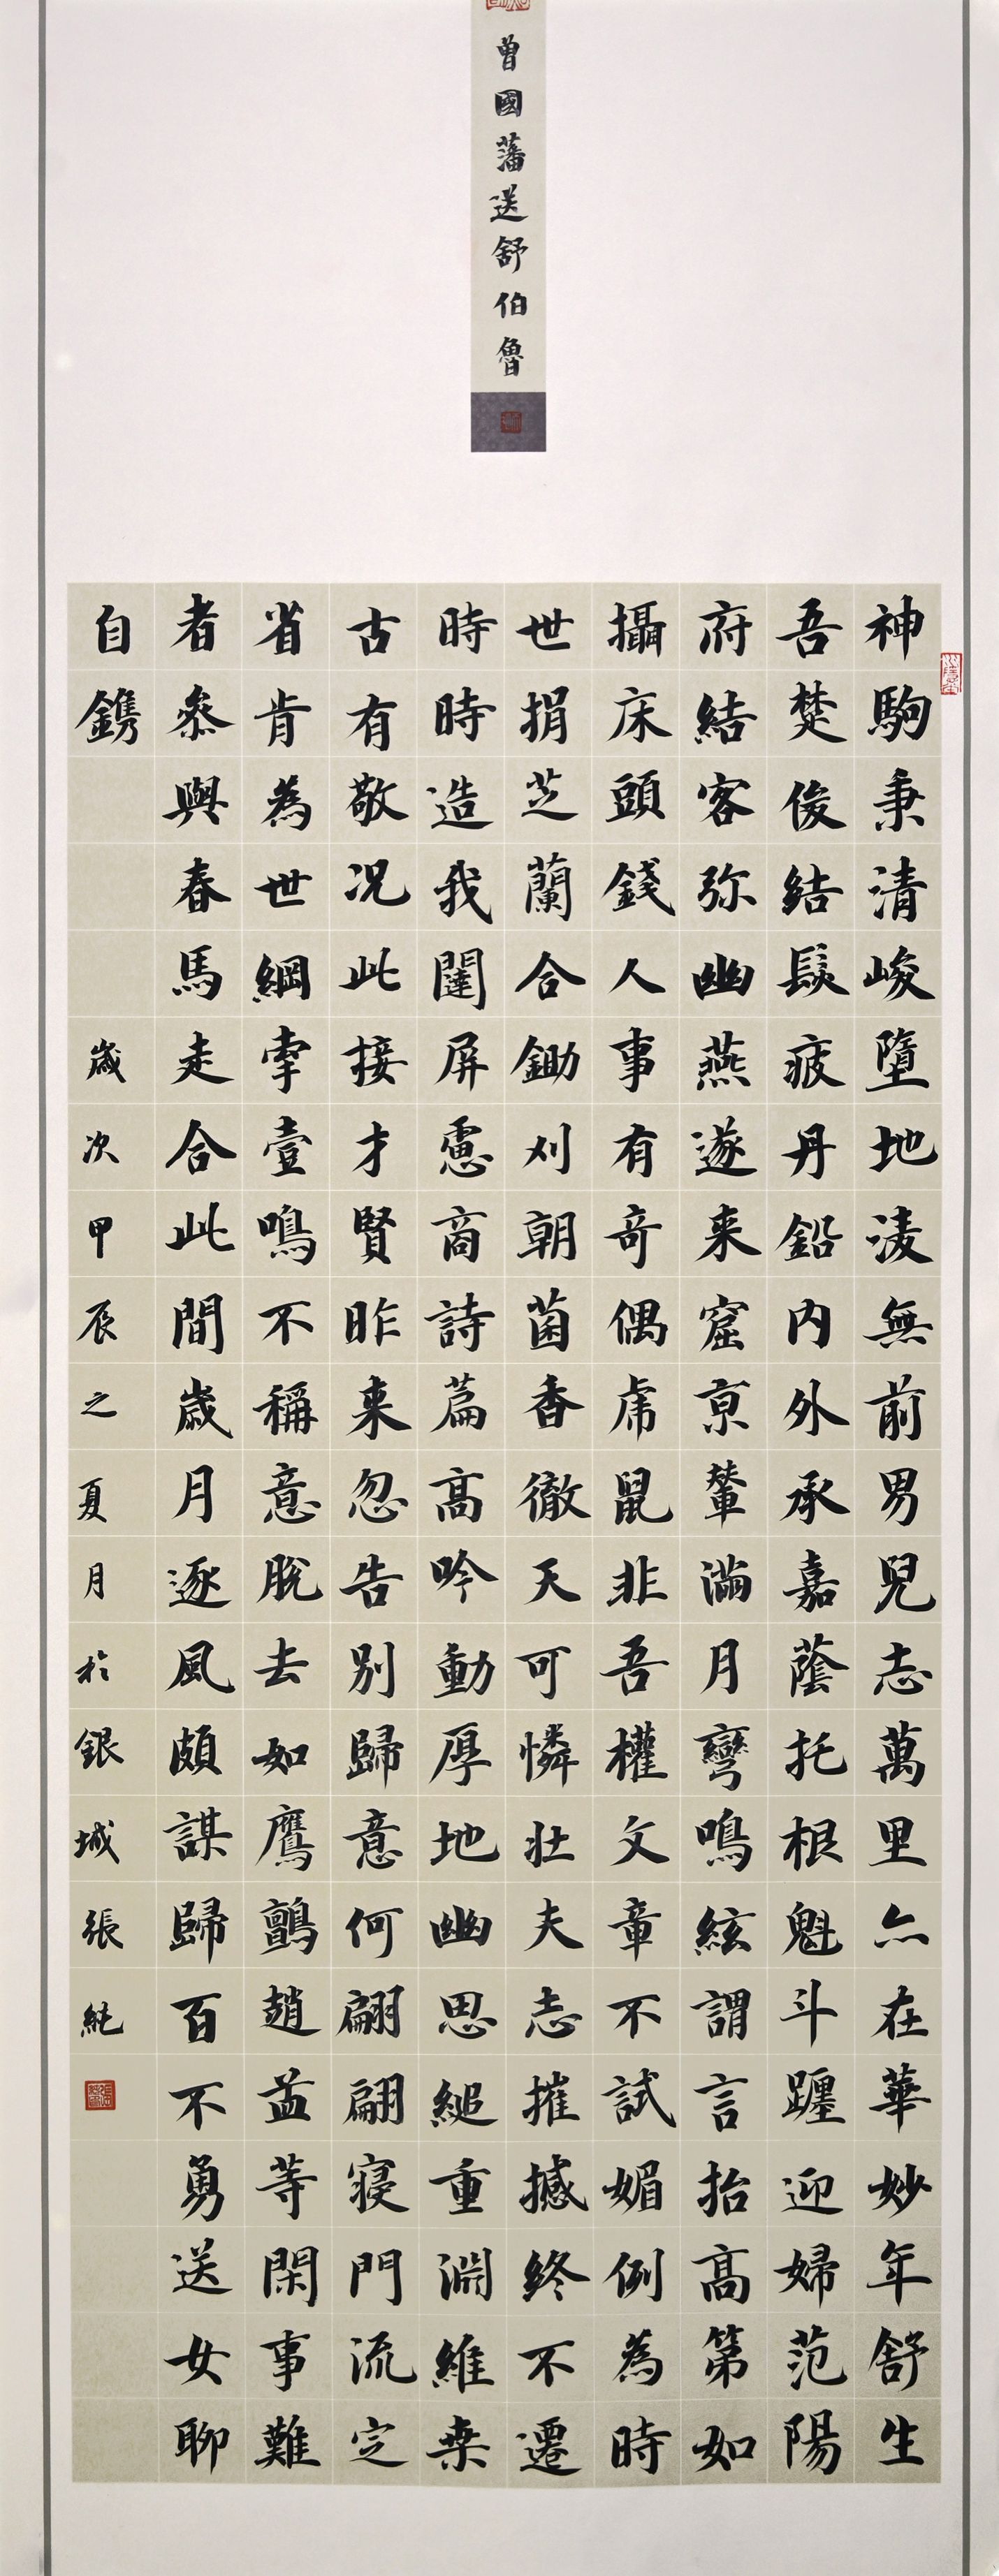 曾國藩送舒伯魯
神駒秉清峻墮地淩無前男兒志萬里亦在華妙年舒生
吾楚俊結髮疲丹鉛內外承嘉蔭托根魁斗躔迎婦范陽
府結客弥幽燕遂来窟京輦滿月彎鳴絃謂言抬高第如
攝床頭錢人事有奇偶虎鼠非吾權文章不試媚例為時
世捐芝蘭合鋤刈朝菌香徹天可憐壯夫志摧撼終不遷
時時造我闥屏慮商詩篇高吟動厚地幽思縋重淵維桑
古有敬況此接才賢昨来忽告別歸意何翩翩寢門流定
省肯為世網牽壹鳴不稱意脫去如鷹鸇趙孟等閑事難
者參與騫馬走合此間歲月逐風頗謀歸百不勇送女聊
自鐫
歲次甲辰之夏月於銀城張純